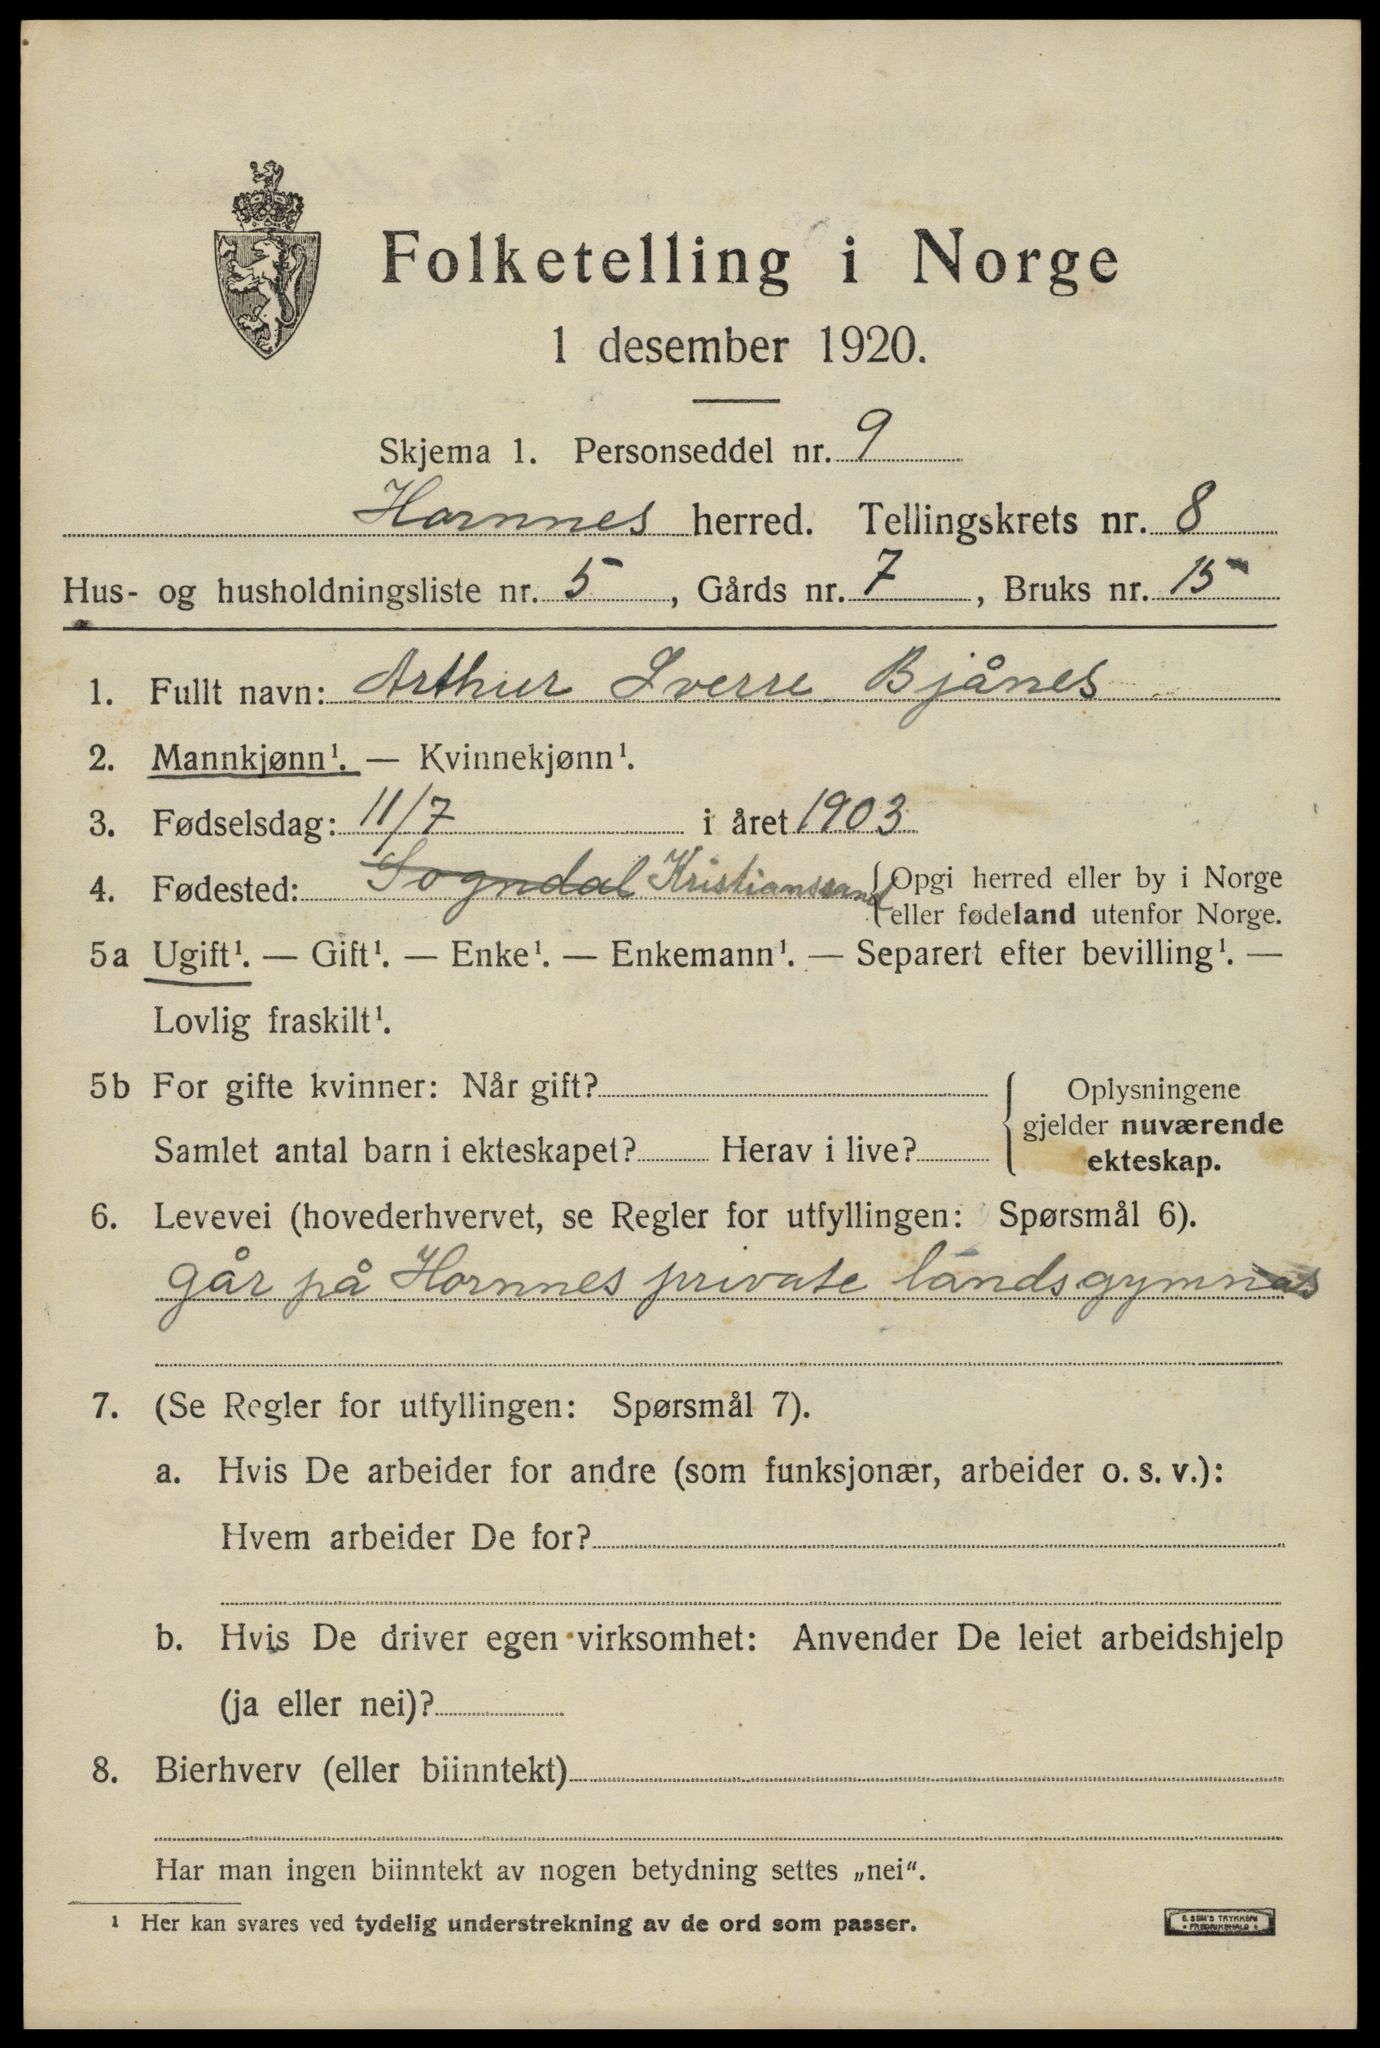 Folketelling i Norge
1 desember 1920.
Skjema 1. Personseddel nr. 9
Hornnes herred. Tellingskrets nr. 8
Hus- og husholdningsliste nr. 5, Gårds nr. 7, Bruks nr. 15
1. Fullt navn: Arthur Sverre Bjånes
2. Mannkjønn¹. — Kvinnekjønn¹.
3. Fødselsdag: 11/7 i året 1903
4. Fødested: Sogndal Kristianssand {Opgi herred eller by i Norge
eller fødeland utenfor Norge.
5a Ugift¹. — Gift¹. — Enke¹. — Enkemann¹. — Separert efter bevilling¹. —
Lovlig fraskilt¹.
5b For gifte kvinner: Når gift? { Oplysningene
gjelder nuværende
Samlet antal barn i ekteskapet? Herav i live?
ekteskap.
6. Levevei (hovederhvervet, se Regler for utfyllingen: Spørsmål 6).
går på Hornnes private landsgymnas
7. (Se Regler for utfyllingen: Spørsmål 7).
a. Hvis De arbeider for andre (som funksjonær, arbeider o. s. v.):
Hvem arbeider De for?
b. Hvis De driver egen virksomhet: Anvender De leiet arbeidshjelp
(ja eller nei)?
8. Bierhverv (eller biinntekt)
Har man ingen biinntekt av nogen betydning settes „nei“.
¹ Her kan svares ved tydelig understrekning av de ord som passer.
E. SEM'S TRYKKERI
FREDRIKSHALD